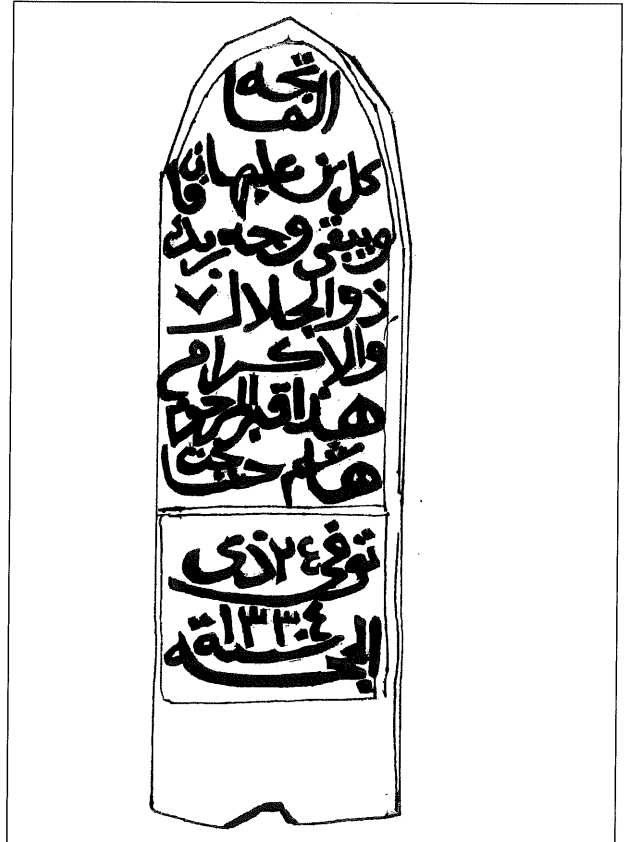 الفاتحه
كل من عليها فان
ويبقى وجه ربك
ذو الجلال
والاكرام
هذا قبر المرحوم
هاشم
توفي ٢٤ ذى
الحجه سنة ١٣٣٤